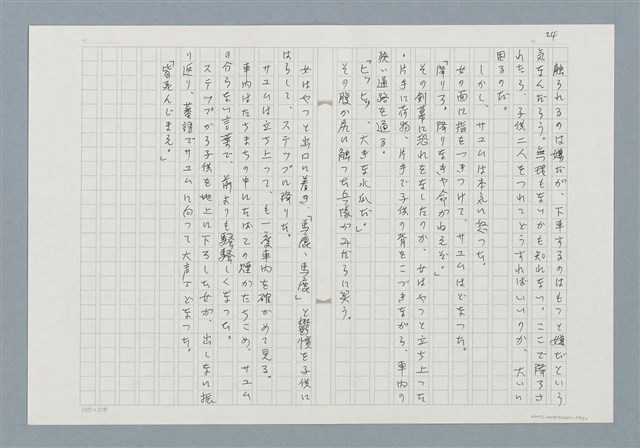 24
触られるのは嫌だが、下車するのはもっと嫌だという
気なんだろう。無理もないかも知れない。ここで降ろさ
れたら、子供二人をつれてどうすればいいのか、大いに
困るのだ。
しかし、サユムは本気に怒った。
女の面に指をつきつけて、サユムはどなった。
「降りろ。降りなきゃ命がねえぞ。」
その剣幕に恐れをなしたのか、女はやっと立ち上った
。片手に荷物、片手で子供の背をこづきながら、車内の
狭い通路を通る。
「ヒッヒッ、大きな水瓜だ。」
その股が尻に触った兵隊がみだらに笑う。
女はやっと出口に着き、「馬鹿、馬鹿」と鬱憤を子供に
はらして、ステップに降りた。
サユムは立ち上って、も一度車内を確かめて見る。
車内はたちまちの中にたばこの煙がたちこめ、サユム
の分らない言葉で、前よりも騒騒しくなった。
ステップから子供を地上に下ろした女が、出しない振
り返り、蕃語でサユムに向って大声でどなった。
「皆死んじまえ。」